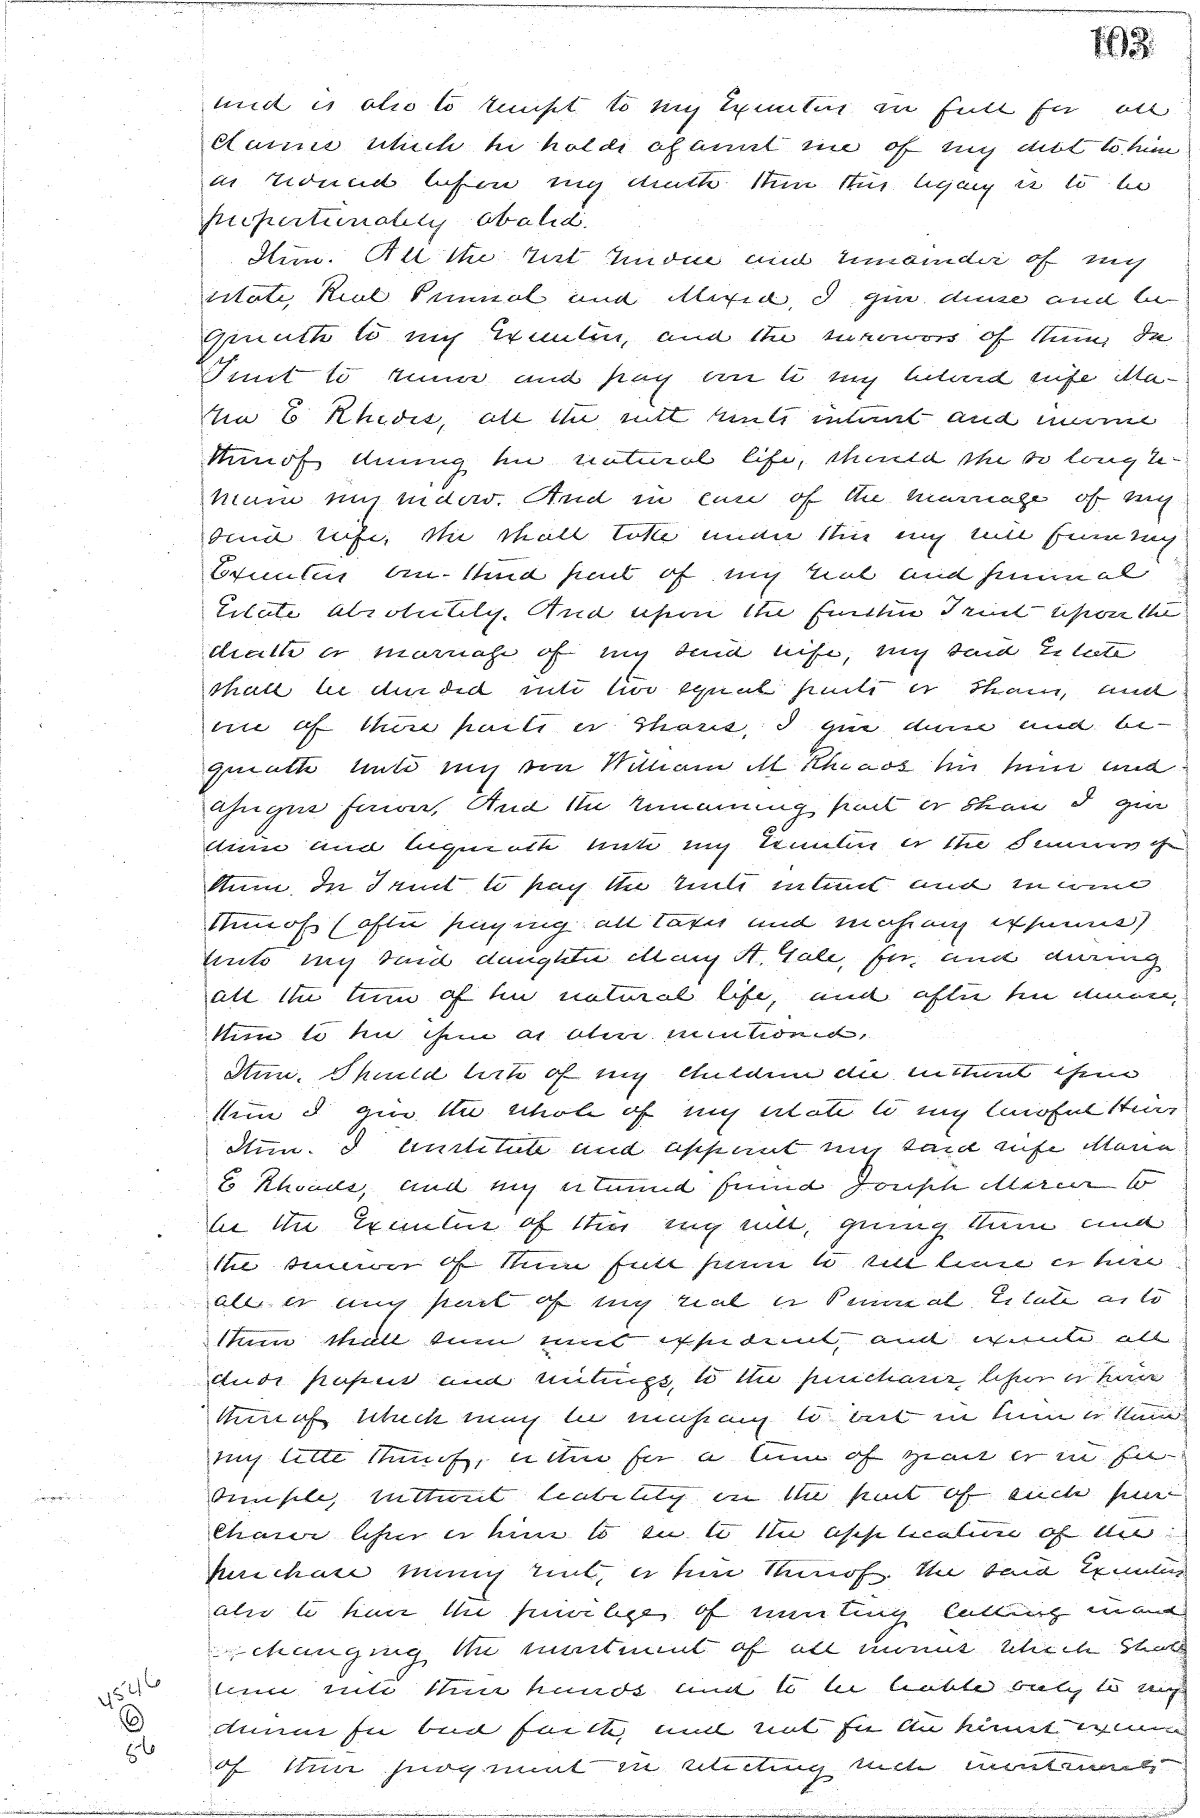 103
and is also to receipt to my Executors in full for all
claims which he holds against me if my debt to him
is reduced before my death then this legacy is to be
proportionately abated.
Item. All the rest residue and remainder of my
estate, Real Personal and Mixed, I give devise and be-
queath to my Executors, and the survivors of them, In
Trust to receive and pay over to my beloved wife Ma-
ria E Rhodes, all the nett rents interest and income
thereof during her natural life, should she so long re-
main my widow. And in case of the marriage of my
said wife, she shall take under this my will from my
Executors one-third part of my real and personal
Estate absolutely. And upon the further Trust upon the
death or marriage of my said wife, my said Estate
shall be divided into two equal parts or shares, and
one of these parts or shares, I give devise and be-
queath unto my son William M Rhoads his heirs and
assigns forever, And the remaining part or share I give
devise and bequeath unto my Executors or the Survivors of
them In Trust to pay the rents interest and income
thereof (after paying all taxes and necessary expenses)
unto my said daughter Mary A. Gale, for, and during
all the term of her natural life, and after her decease,
then to her issue as above mentioned.
Item. Should both of my children die without issue
then I give the whole of my estate to my lawful Heirs
Item. I constitute and appoint my said wife Maria
E Rhoads, and my esteemed friend Joseph Mercer to
be the Executors of this my will, giving them and
the survivor of them full power to sell lease or hire
all or any part of my real or Personal Estate as to
them shall seem most expedient, and execute all
deeds papers and writings, to the purchaser, lessor or hirer
thereof which may be necessary to vest in him or them
my title thereof, either for a term of years or in fee
simple, without liability on the part of such pur-
chaser lessor or hirer to see to the application of the
purchase money rent, or hire thereof. the said Executors
also to have the privilege of investing calling in and
changing the investment of all monies which shall
come into their hands and to be liable only to my
devisees for bad faith, and not for the honest exercise
of their judgment in selecting such investments
4546
6
56